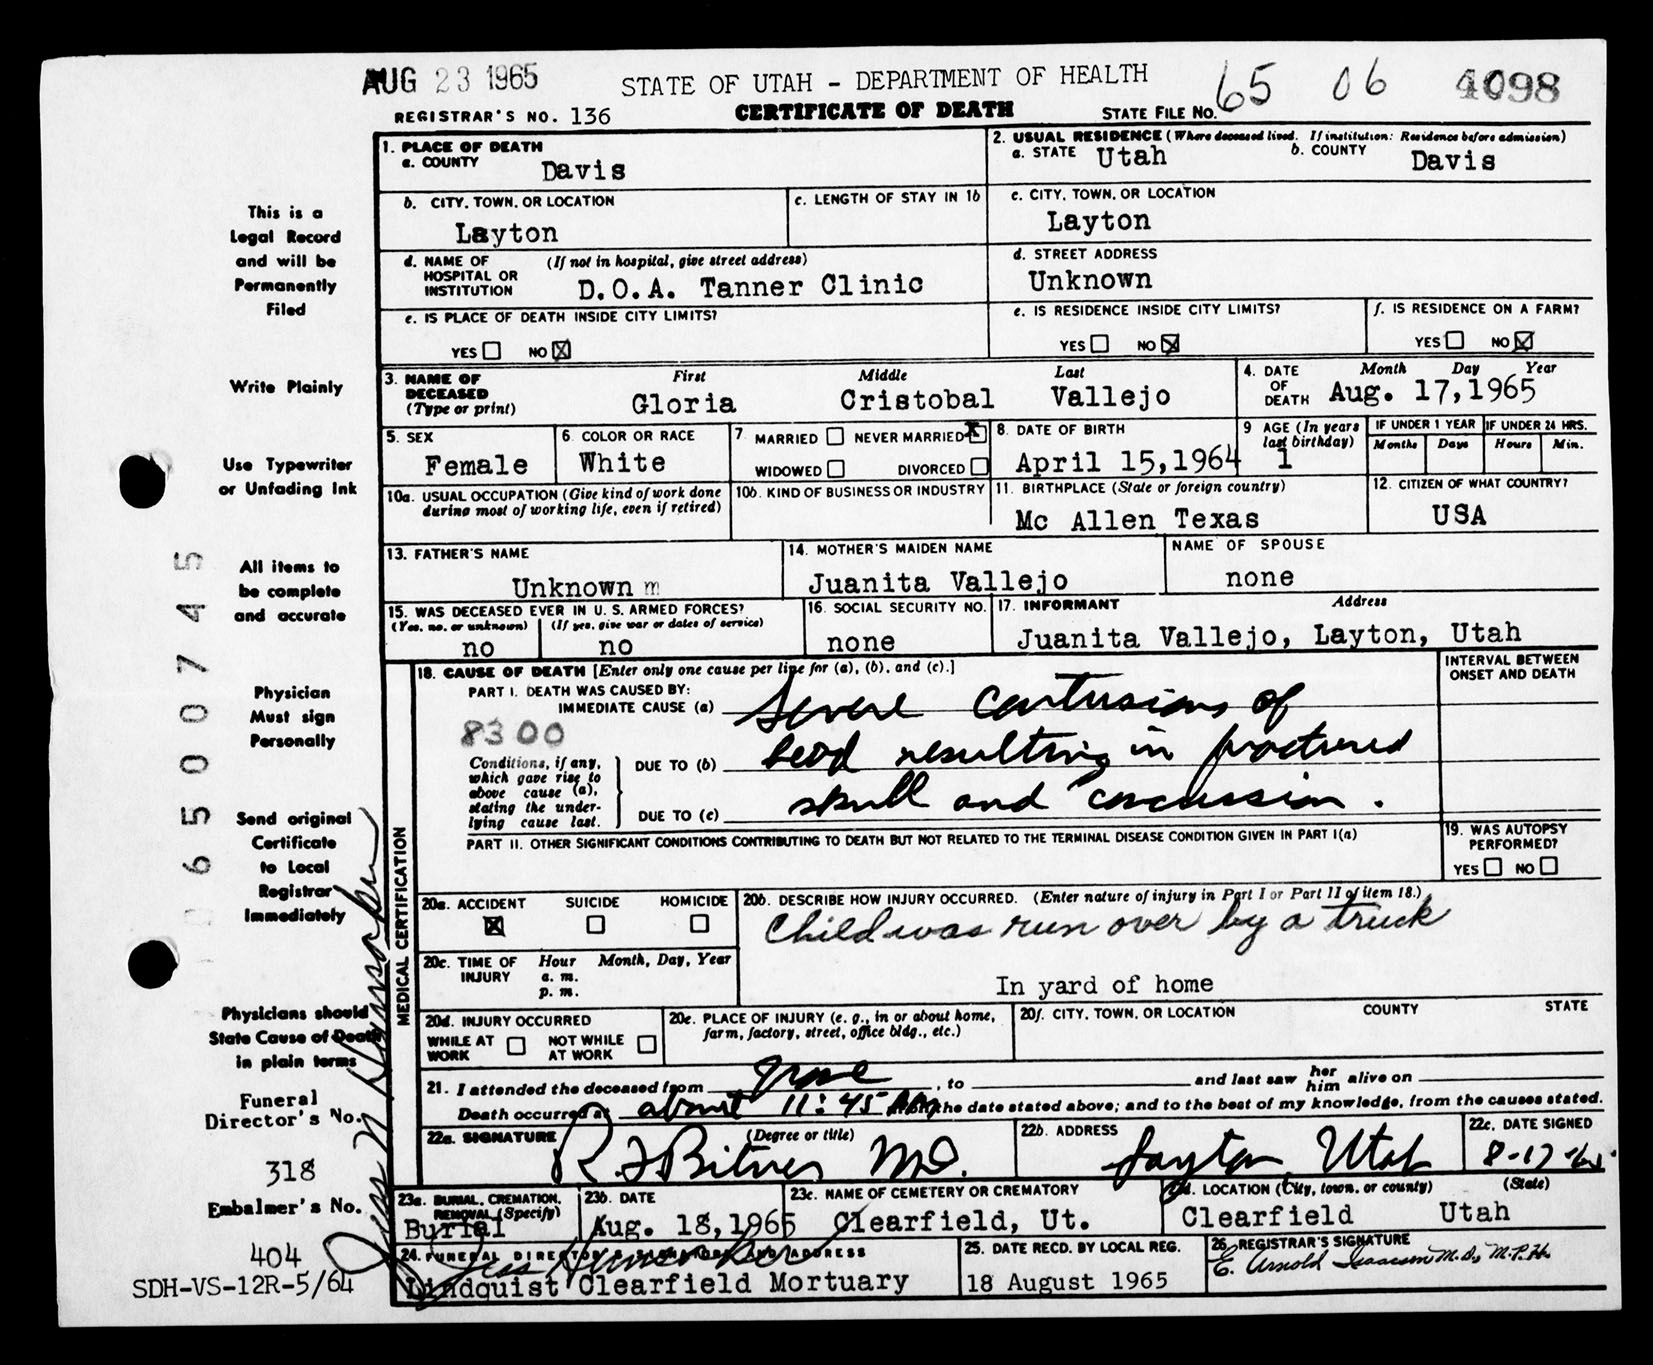 AUG 23 1965
STATE OF UTAH - DEPARTMENT OF HEALTH
65 06 4098
REGISTRAR'S NO. 136
CERTIFICATE OF DEATH
STATE FILE NO.
This is a
Legal Record
and will be
Permanently
Filed
Write Plainly
Use Typewriter
or Unfading Ink
All items to
be complete
and accurate
Physician
Must sign
Personally
Send original
Certificate
to Local
Registrar
Immediately
Physicians should
State Cause of Death
in plain terms
Funeral
Director's No.
318
Embalmer's No.
404
SDH-VS-12R-5/64
6500745
Jess N Hunsaker
1. PLACE OF DEATH
a. COUNTY Davis
2. USUAL RESIDENCE (Where deceased lived. If institution: Residence before admission)
a. STATE Utah b. COUNTY Davis
b. CITY, TOWN, OR LOCATION
Layton
c. LENGTH OF STAY IN 1b
c. CITY, TOWN, OR LOCATION
Layton
d. NAME OF HOSPITAL OR INSTITUTION (If not in hospital, give street address)
D.O.A. Tanner Clinic
d. STREET ADDRESS
Unknown
e. IS PLACE OF DEATH INSIDE CITY LIMITS?
YES NO X
e. IS RESIDENCE INSIDE CITY LIMITS?
YES NO X
f. IS RESIDENCE ON A FARM?
YES NO X
3. NAME OF DECEASED (Type or print)
First Middle Last
Gloria Cristobal Vallejo
4. DATE OF DEATH Month Day Year
Aug. 17,1965
5. SEX
Female
6. COLOR OR RACE
White
7 MARRIED NEVER MARRIED X
WIDOWED DIVORCED
8. DATE OF BIRTH
April 15,1964
9 AGE (In years last birthday)
1
IF UNDER 1 YEAR
Months Days
IF UNDER 24 HRS.
Hours Min.
10a. USUAL OCCUPATION (Give kind of work done during most of working life, even if retired)
10b. KIND OF BUSINESS OR INDUSTRY
11. BIRTHPLACE (State or foreign country)
Mc Allen Texas
12. CITIZEN OF WHAT COUNTRY?
USA
13. FATHER'S NAME
Unknown m
14. MOTHER'S MAIDEN NAME
Juanita Vallejo
NAME OF SPOUSE
none
15. WAS DECEASED EVER IN U. S. ARMED FORCES?
(Yes, no, or unknown) (If yes, give war or dates of service)
no no
16. SOCIAL SECURITY NO.
none
17. INFORMANT Address
Juanita Vallejo, Layton, Utah
MEDICAL CERTIFICATION
18. CAUSE OF DEATH [Enter only one cause per line for (a), (b), and (c).]
INTERVAL BETWEEN
ONSET AND DEATH
PART I. DEATH WAS CAUSED BY:
IMMEDIATE CAUSE (a) Severe contusions of
8300
Conditions, if any,
which gave rise to
above cause (a),
stating the under-
lying cause last.
DUE TO (b) head resulting in fractured
DUE TO (c) skull and concussion.
PART II. OTHER SIGNIFICANT CONDITIONS CONTRIBUTING TO DEATH BUT NOT RELATED TO THE TERMINAL DISEASE CONDITION GIVEN IN PART I(a)
19. WAS AUTOPSY
PERFORMED?
YES NO
20a. ACCIDENT SUICIDE HOMICIDE
X
20b. DESCRIBE HOW INJURY OCCURRED. (Enter nature of injury in Part I or Part II of item 18.)
Child was run over by a truck
In yard of home
20c. TIME OF INJURY Hour Month, Day, Year
a. m.
p. m.
20d. INJURY OCCURRED
WHILE AT WORK NOT WHILE AT WORK
20e. PLACE OF INJURY (e. g., in or about home,
farm, factory, street, office bldg., etc.)
20f. CITY, TOWN, OR LOCATION COUNTY STATE
21. I attended the deceased from , to and last saw her him alive on
Death occurred at about 11:45 AM on the date stated above; and to the best of my knowledge, from the causes stated.
22a. SIGNATURE (Degree or title)
R J Bitner MD.
22b. ADDRESS
Layton, Utah
22c. DATE SIGNED
8-17-65
23a. BURIAL, CREMATION,
REMOVAL (Specify)
Burial
23b. DATE
Aug. 18,1965
23c. NAME OF CEMETERY OR CREMATORY
Clearfield, Ut.
23d. LOCATION (City, town, or county) (State)
Clearfield Utah
24. FUNERAL DIRECTOR'S SIGNATURE AND ADDRESS
Jess Hunsaker
Lindquist Clearfield Mortuary
25. DATE RECD. BY LOCAL REG.
18 August 1965
26. REGISTRAR'S SIGNATURE
E. Arnold Isaacson M.D., M.P.H.